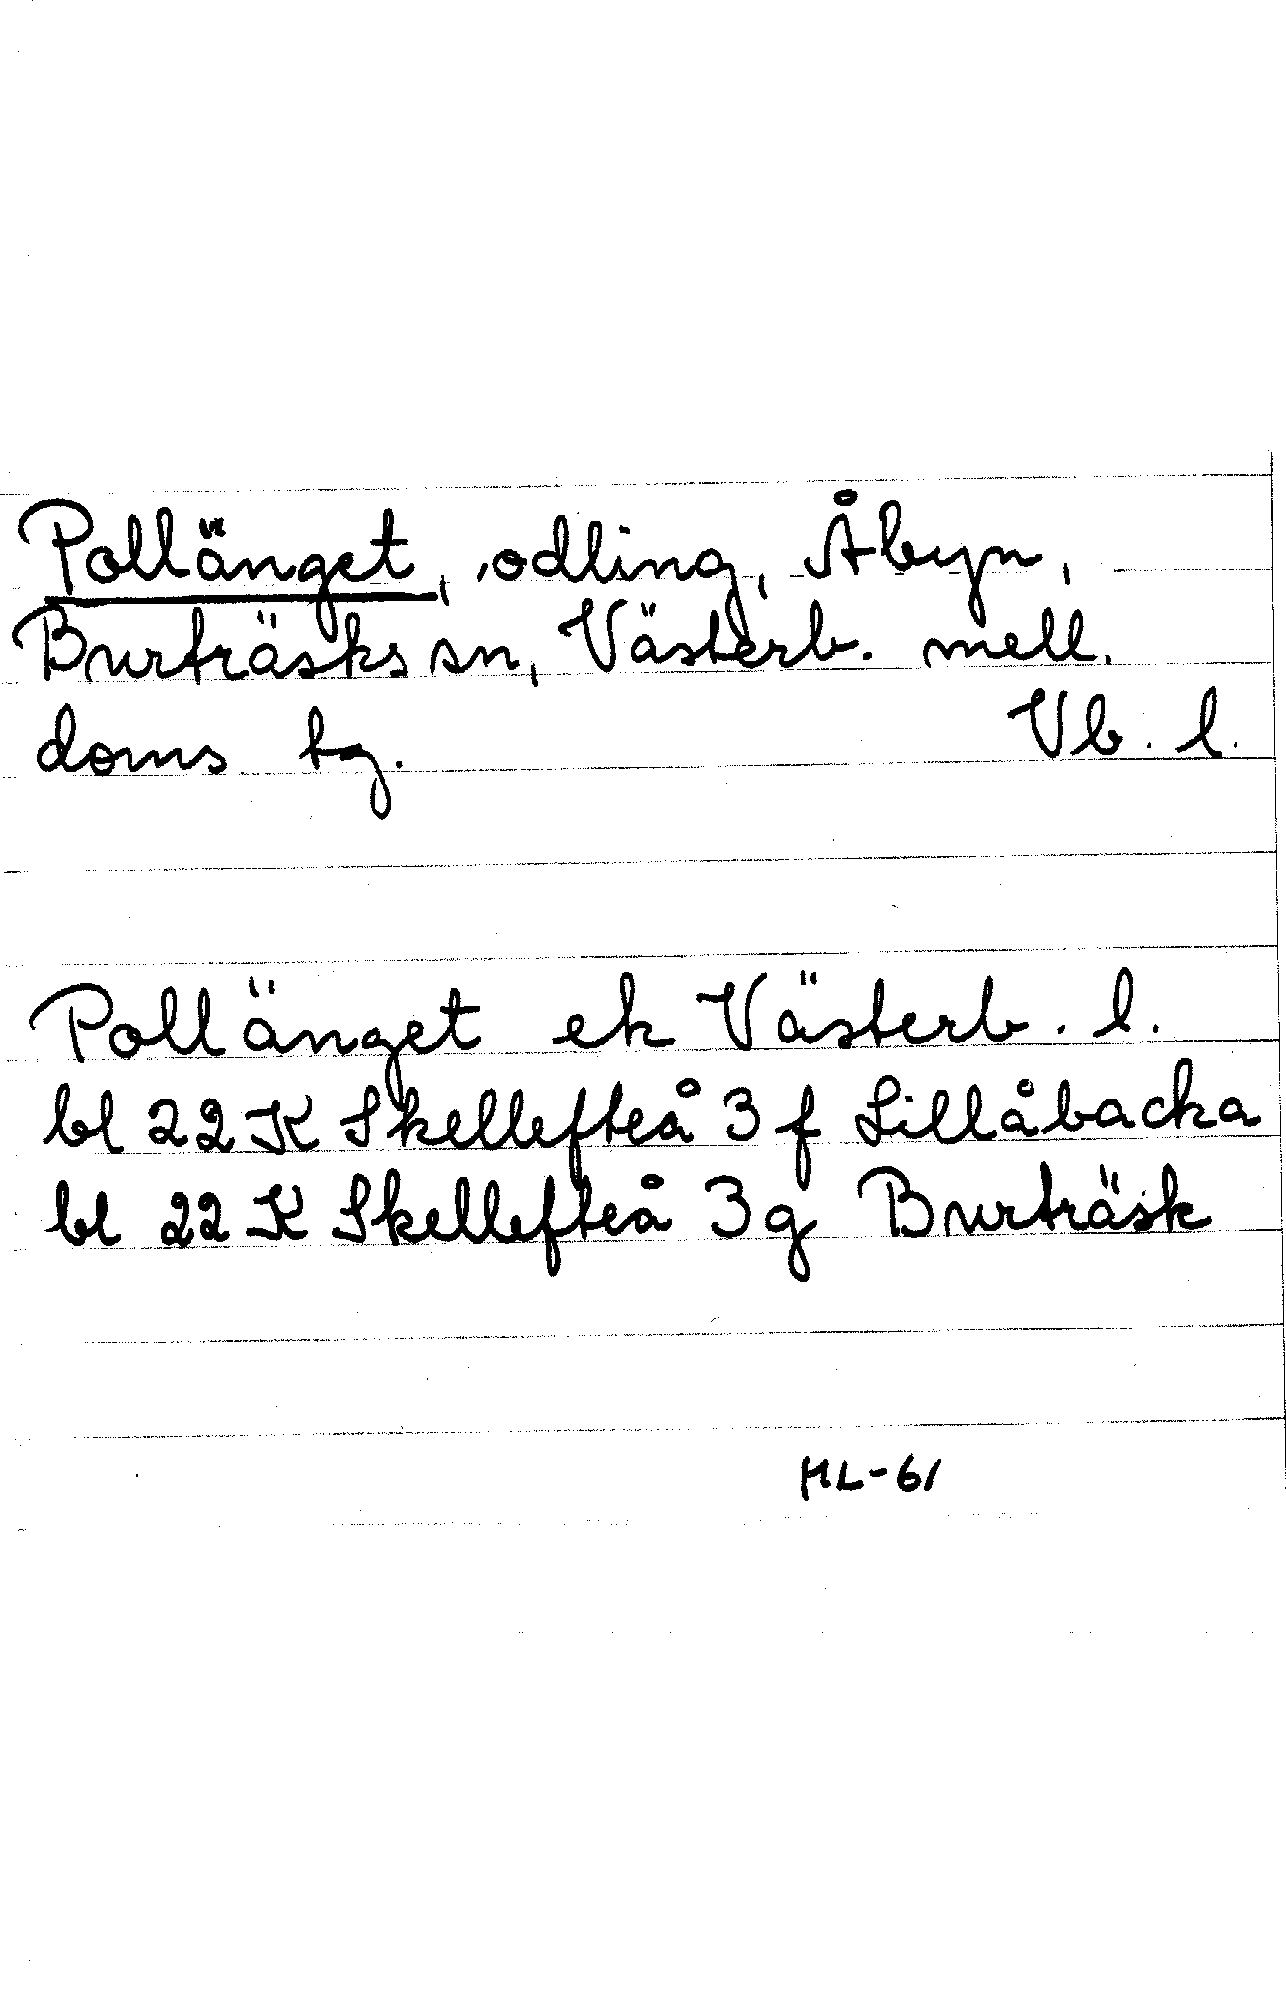 Pollänget, odling, Åbyn,
Burträsks sn, Västerb. mell.
doms tg. Vb. l.
Pollänget ek Västerb. l.
bl 22 K Skellefteå 3 f Lillåbacka
bl 22 K Skellefteå 3 g Burträsk
HL-61